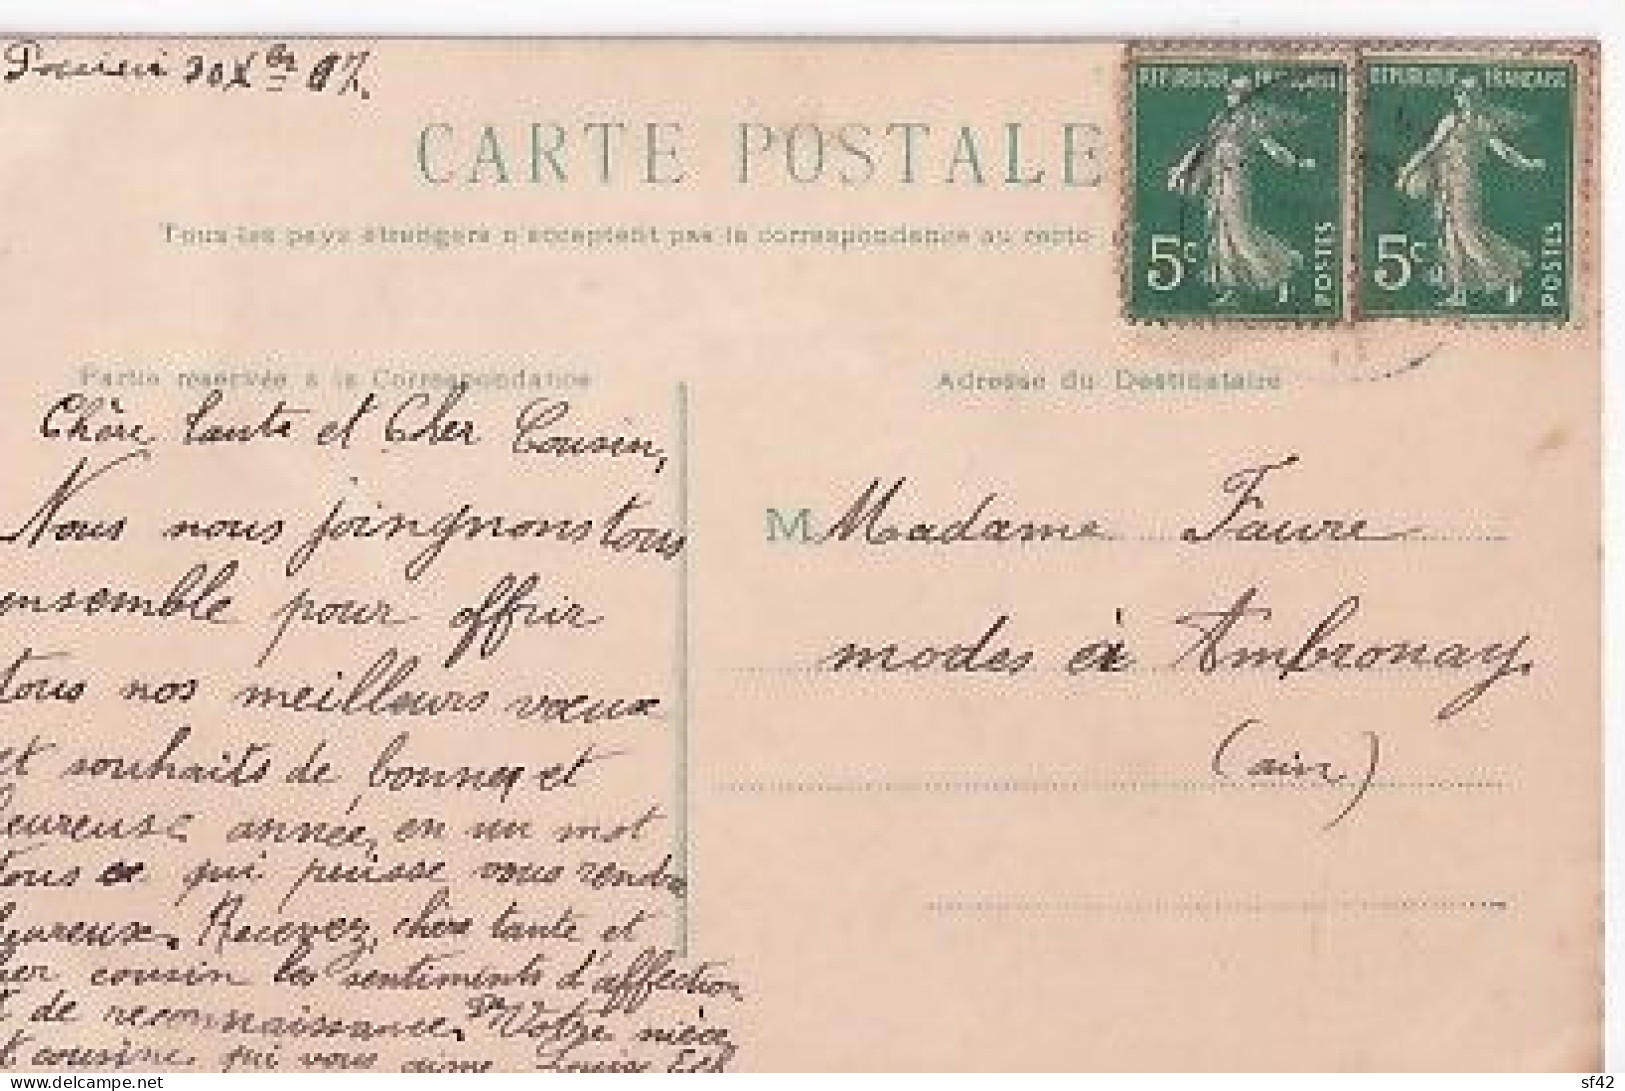 30 Xbre 07.
CARTE POSTALE
Tous les pays étrangers n'acceptent pas la correspondance au recto
RÉPUBLIQUE FRANÇAISE
5c POSTES
RÉPUBLIQUE FRANÇAISE
5c POSTES
Partie réservée à la Correspondance
Adresse du Destinataire
Chère tante et Cher Cousin,
Nous nous joingnons tous
ensemble pour offrir
tous nos meilleurs vœux
et souhaits de bonnes et
heureuse année, en un mot
tous ce qui puisse vous rendre
heureuse. Recevez, chère tante et
cher cousin les sentiments d'affection
et de reconnaissance. Votre nièce
et cousine qui vous aime Louise
M. Madame Faure
modes à Ambronay.
(ain)
delcampe.net
sf42